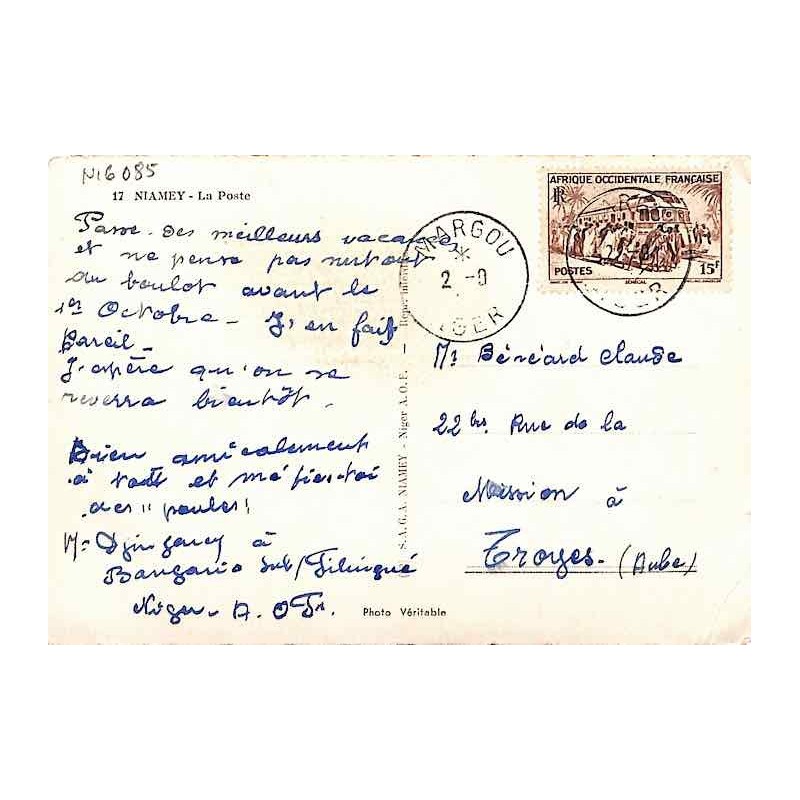 NIG 085
17 NIAMEY - La Poste
Passe des meilleurs vacances
et ne pense pas surtout
au boulot avant le
1er Octobre - J'en fait
Pareil -
J'espère qu'on se
reverra bientôt.
Bien amicalement
à toi et méfies-toi
des "poules!
Mr à
Bangario Sub/Filingué
Niger - A.O.Fr.
Photo Véritable
S.A.G.A. NIAMEY - Niger A.O.F. -
MARGOU
2 - 9
NIGER
AFRIQUE OCCIDENTALE FRANÇAISE
RF
POSTES
SÉNÉGAL
15F
Mr Bénéard Claude
22 bis, Rue de la
Mission à
Troyes. (Aube)